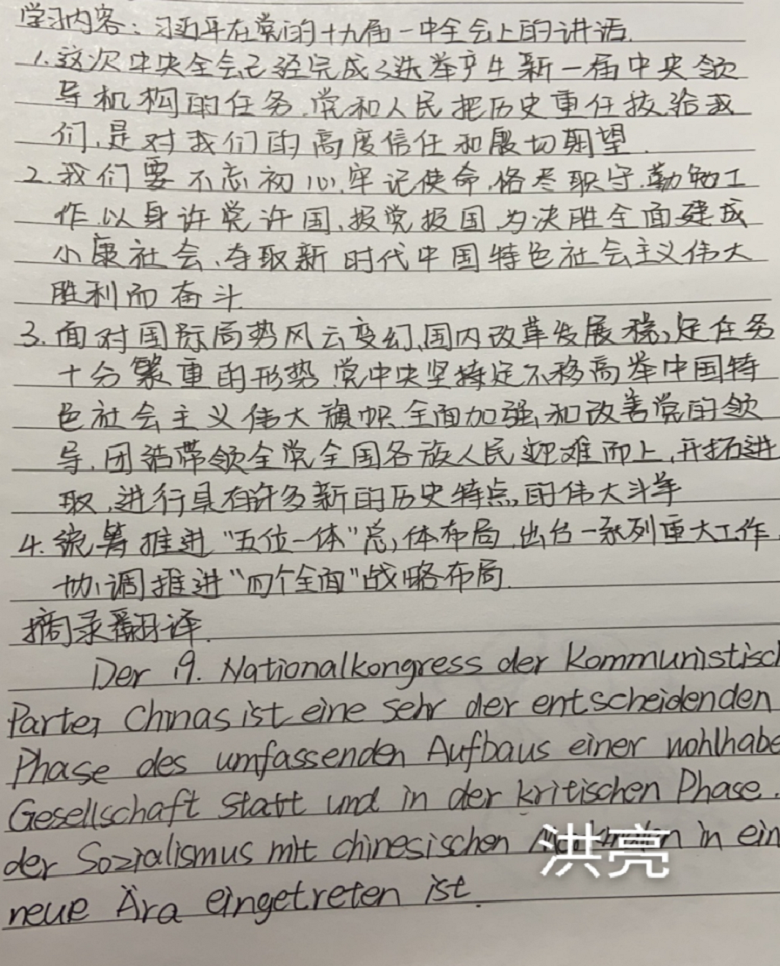 学习内容：习近平在党的十九届一中全会上的讲话.
1.这次中央全会已经完成了选举产生新一届中央领
导机构的任务.党和人民把历史重任拔给我
们,是对我们的高度信任和殷切期望.
2.我们要不忘初心,牢记使命,恪尽职守,勤勉工
作,以身许党许国,报党报国,为决胜全面建成
小康社会、夺取新时代中国特色社会主义伟大
胜利而奋斗
3.面对国际局势风云变幻,国内改革发展稳定任务
十分繁重的形势,党中央坚持定不移高举中国特
色社会主义伟大旗帜,全面加强和改善党的领
导,团结带领全党全国各族人民迎难而上,开拓进
取,进行具有许多新的历史特点的伟大斗争
4.统筹推进"五位一体"总体布局,出台一系列重大工作,
协调推进"四个全面"战略布局.
摘录翻译.
Der 19. Nationalkongress der Kommunistisch
Partei Chinas ist eine sehr der entscheidenden
Phase des umfassenden Aufbaus einer wohlhabe
Gesellschaft statt und in der kritischen Phase.
der Sozialismus mit chinesischen in ein
neue Ära eingetreten ist.
洪亮